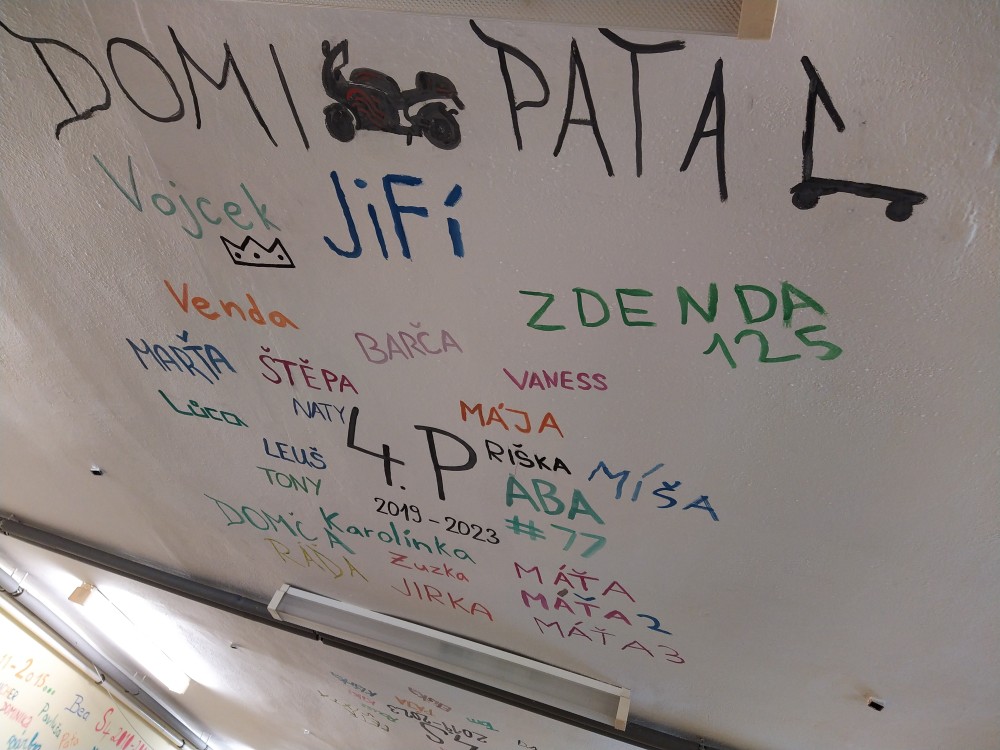 DOMI PAŤA
Vojcek JiFí
Venda
ZDENDA
125
BARČA
MAŘŤA ŠTĚPA
VANESS
Lůca NATY MÁJA
4.P
LEUŠ RIŠKA MÍŠA
TONY ABA
2019-2023 #77
DOMČA Karolínka
RÁĎA Zuzka MÁŤA
JIRKA MÁŤA 2
MÁŤA 3
2015...
Bea
Tom